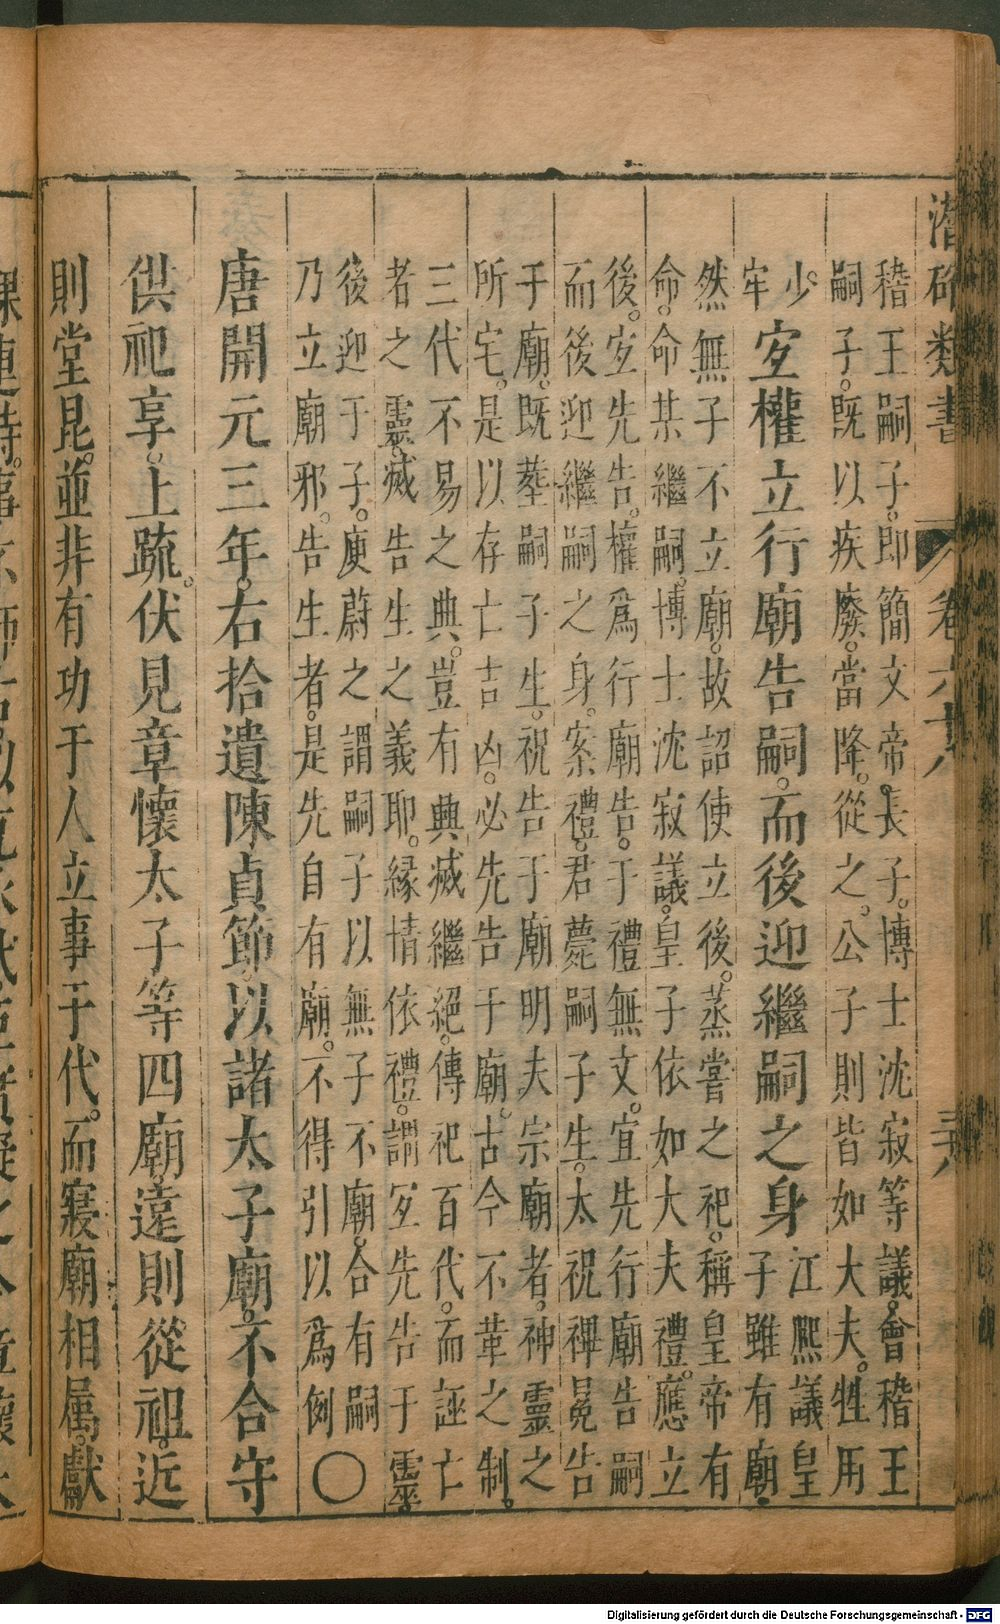 潛確類書 卷六十八 三八
稽王嗣子。即簡文帝長子。博士沈寂等議。會稽王
嗣子。既以疾廢。當降。從之。公子則皆如大夫。牲用
少
牢
宐權立行廟告嗣。而後迎繼嗣之身
江熈議皇
子雖有廟。
然無子不立廟。故詔使立後。蒸嘗之祀。稱皇帝有
命。命某繼嗣。博士沈寂議。皇子依如大夫禮。應立
後。宐先告。權爲行廟告。于禮無文。宜先行廟告嗣
而後迎繼嗣之身。案禮。君薨嗣子生。太祝裨冕告
于廟。既塟嗣子生。祝告于廟明夫宗廟者。神靈之
所宅。是以存亡吉凶。必先告于廟。古今不革之制。
三代不易之典。豈有興滅繼絕。傳祀百代。而誣亡
者之靈。滅告生之義耶。緣情依禮。謂宐先告于靈
後迎于子。庾蔚之謂嗣子以無子不廟。合有嗣
乃立廟邪。告生者。是先自有廟。不得引以爲例〇
唐開元三年。右拾遺陳貞節。以諸太子廟。不合守
供祀享。上疏。伏見章懷太子等四廟。遠則從祖。近
則堂昆。並非有功于人立事于代。而寢廟相屬。獻
Digitalisierung gefördert durch die Deutsche Forschungsgemeinschaft - DFG